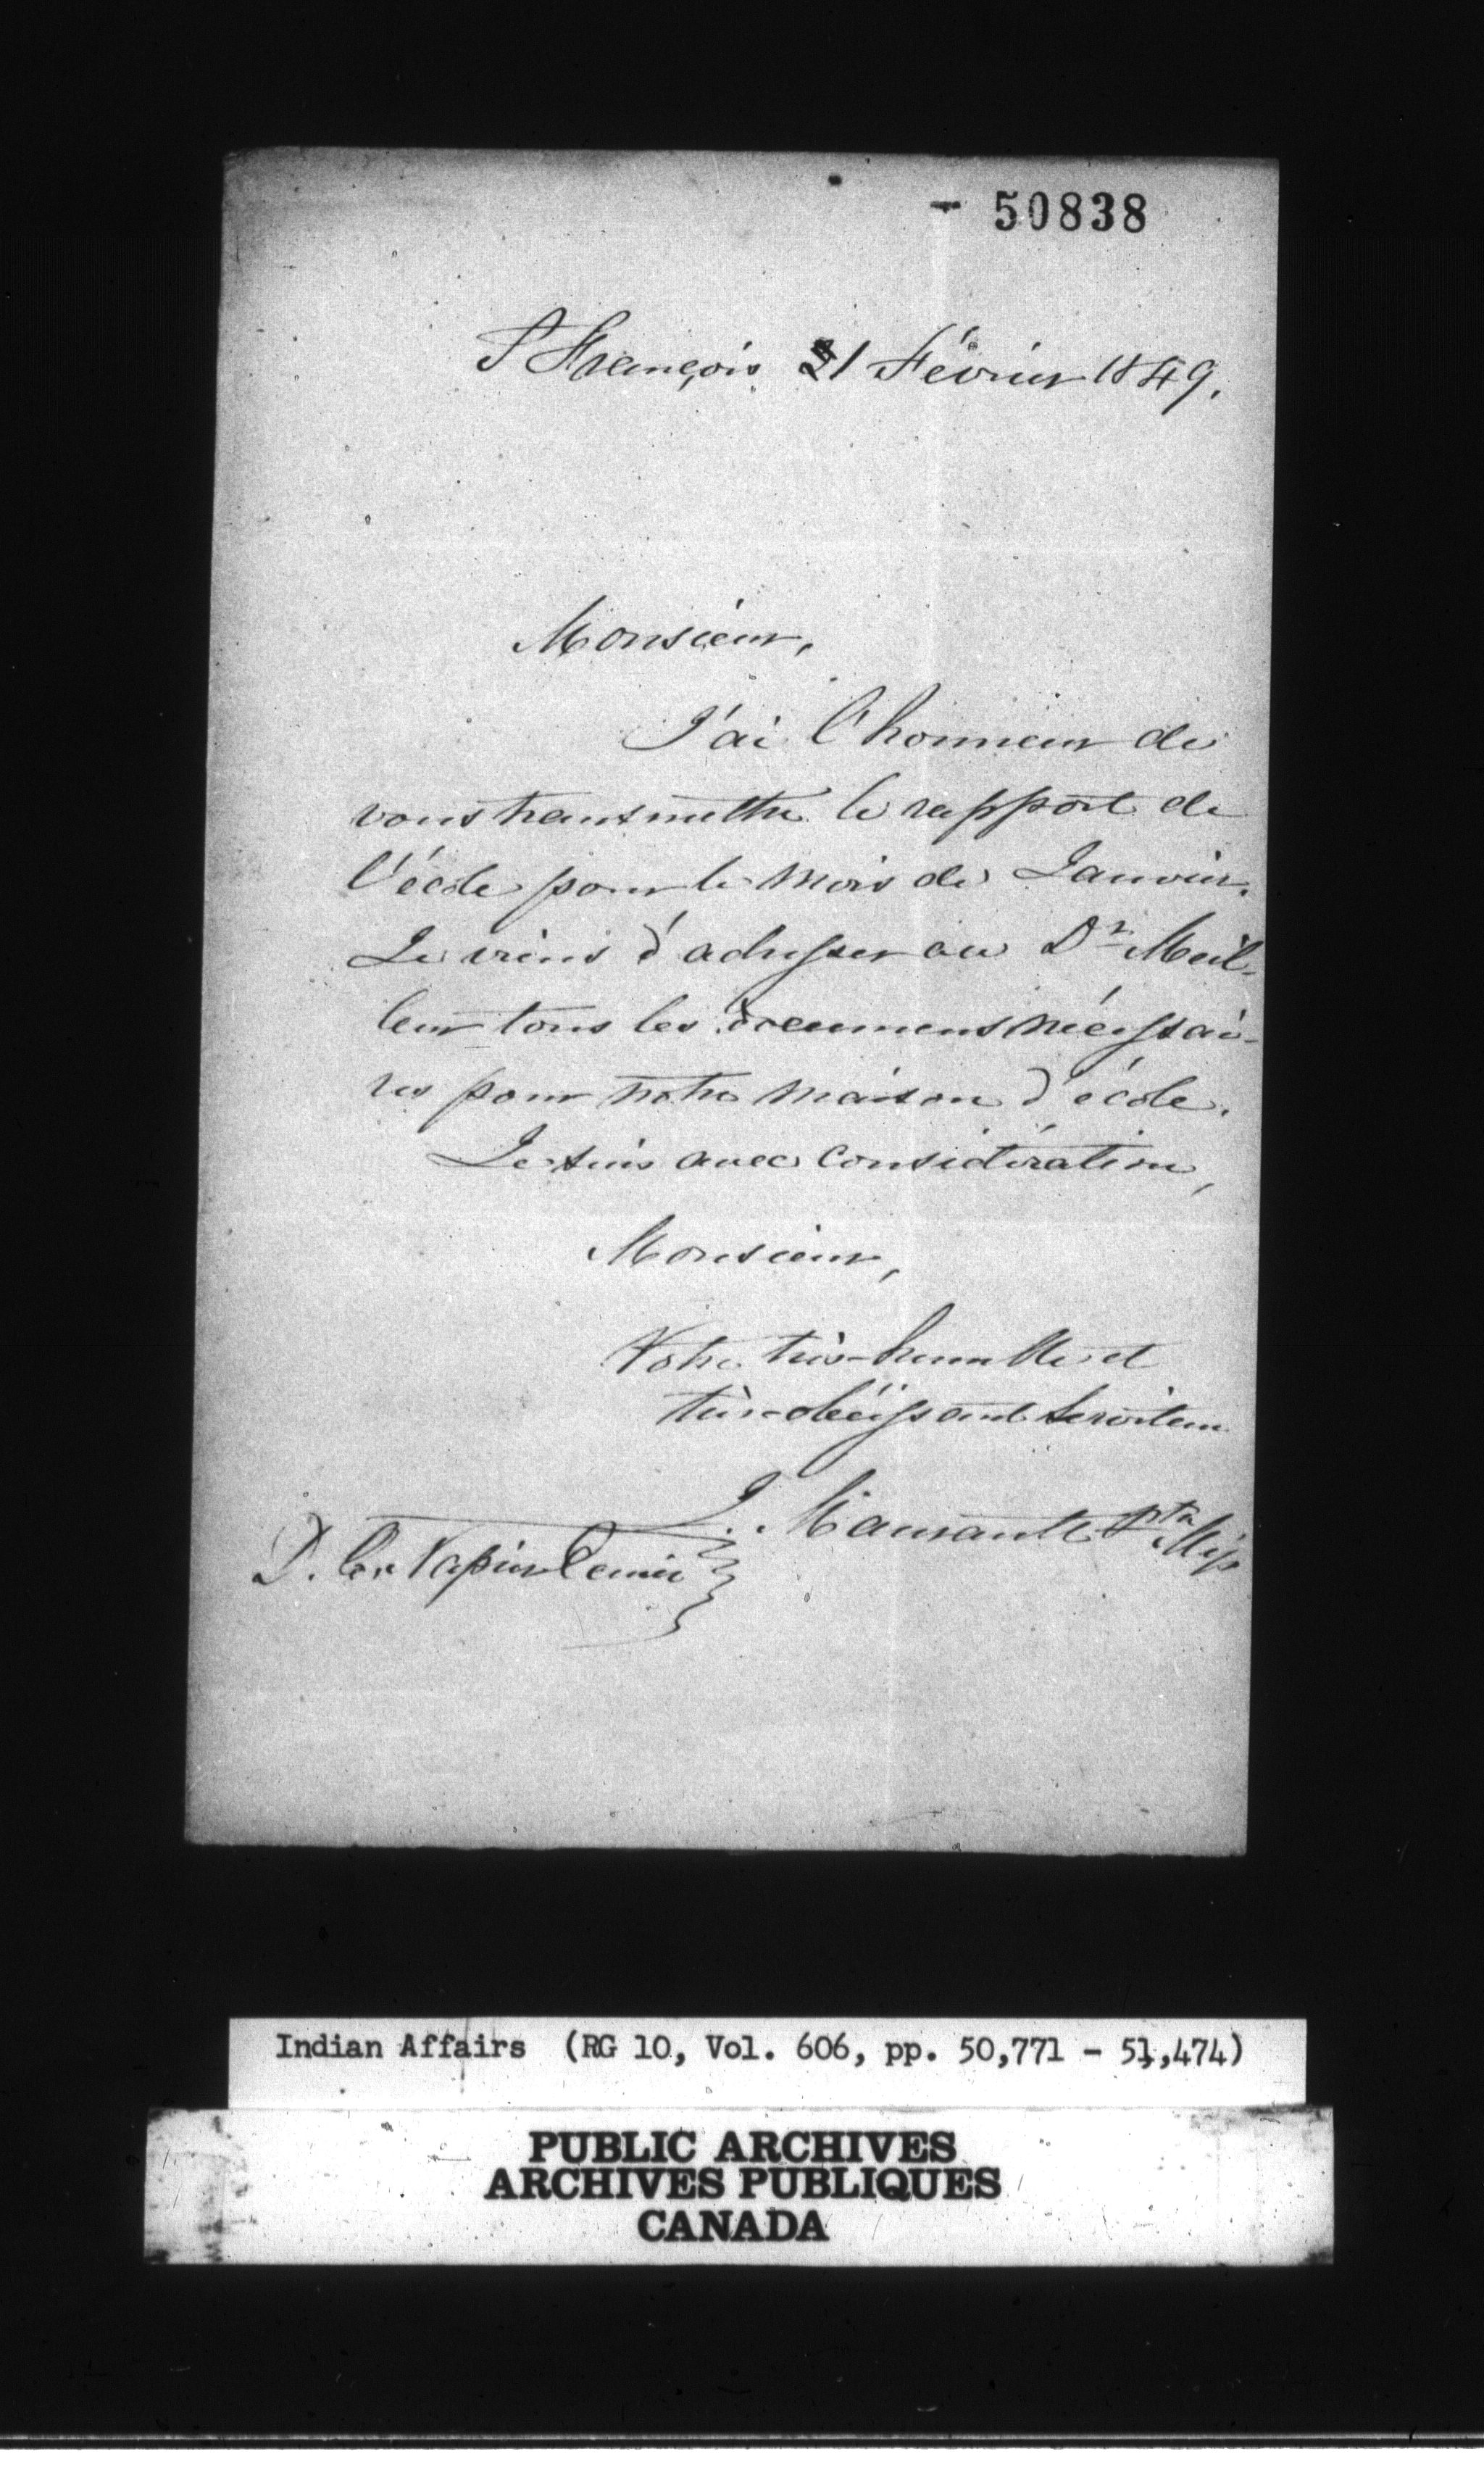 50838
St François 21 Février 1849.
Monsieur,
J'ai l'honneur de
vous transmettre le rapport de
l'école pour le mois de Janvier.
Je viens d'adresser au Dr Meil-
leur tous les documens nécessai-
res pour notre maison d'école.
Je suis avec considération,
Monsieur,
Votre très-humble et
très-obéissant serviteur
J. Maurault Ptre Miss
D. C. Napier Ecuier
Indian Affairs (RG 10, Vol. 606, pp. 50,771 - 51,474)
PUBLIC ARCHIVES
ARCHIVES PUBLIQUES
CANADA